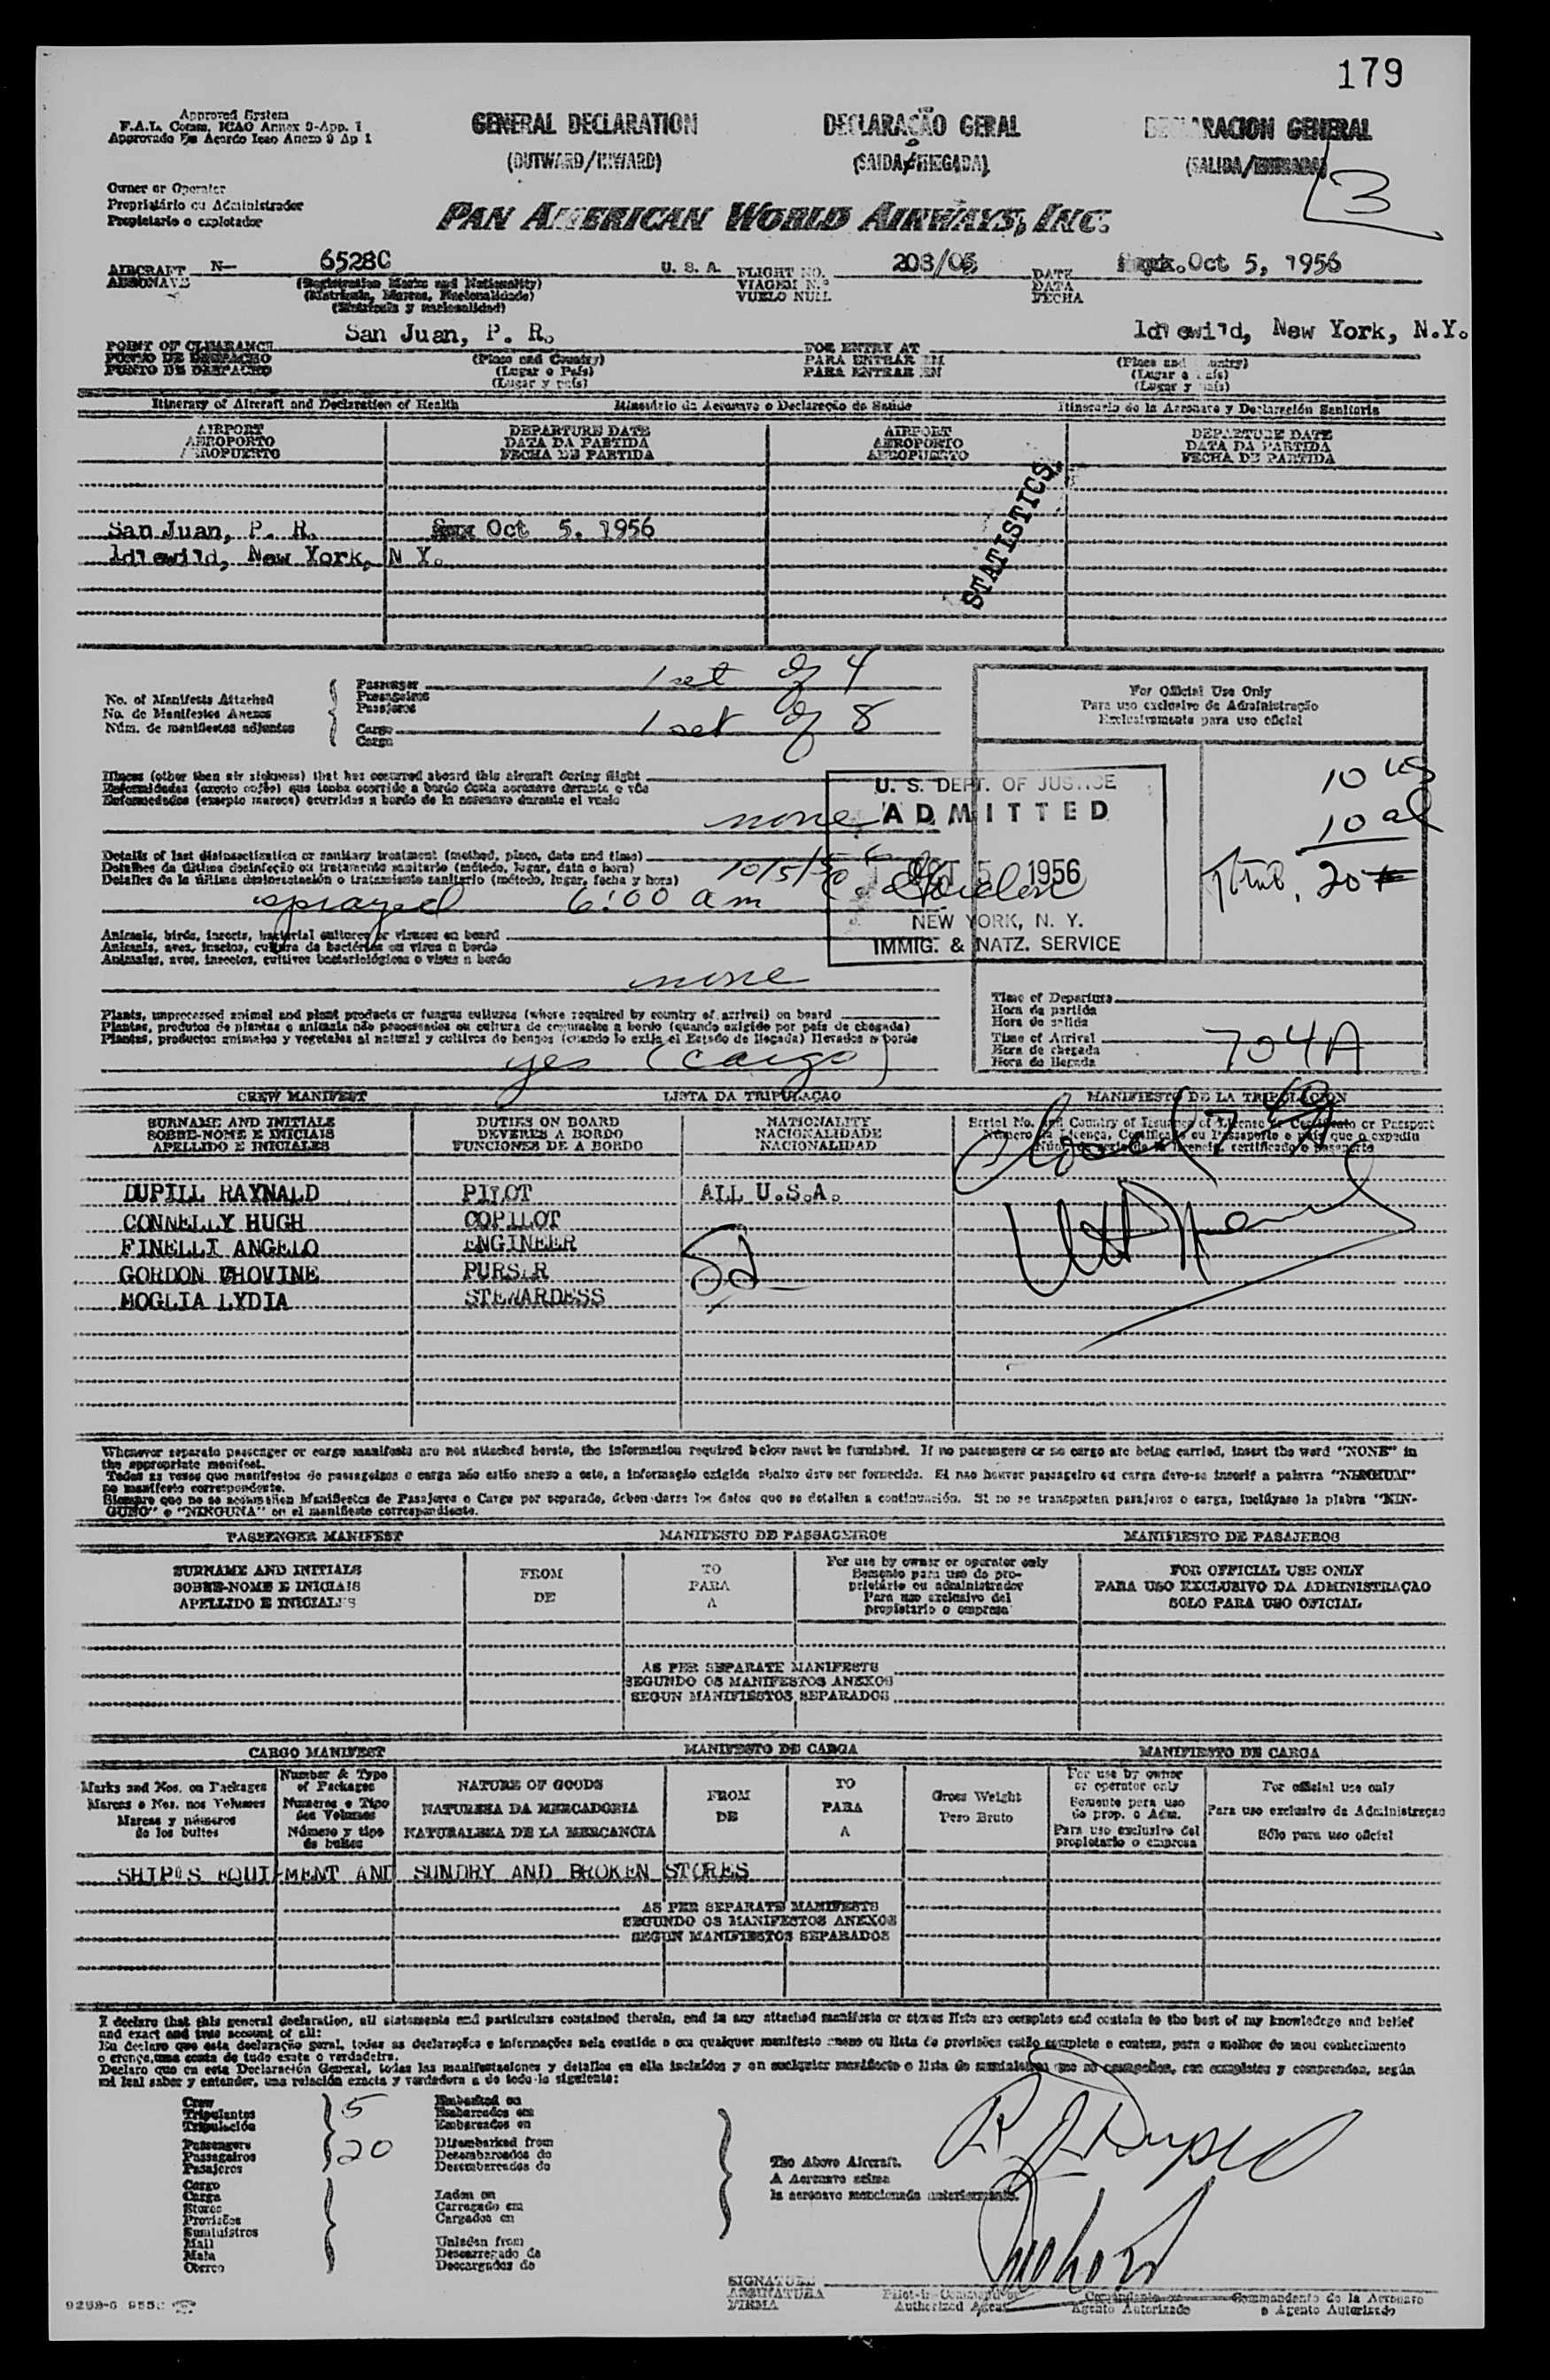 179
Approved System
F.A.L. Comm. ICAO Annex 9-App. 1
Approvado De Acordo Icao Anexo 9 Ap 1
GENERAL DECLARATION
(OUTWARD/INWARD)
DECLARAÇÃO GERAL
(SAIDA/CHEGADA)
DECLARACION GENERAL
(SALIDA/ENTRADA)
3
Owner or Operator
Propriatário ou Administrador
Propietario o explotador
PAN AMERICAN WORLD AIRWAYS, INC.
AIRCRAFT N- 6528C U. S. A. FLIGHT NO. 203/05 DATE Oct 5, 1956
AERONAVE (Registration Marks and Nationality) VIAGEM N.º DATA
(Matricula, Marcas, Nacionalidade) VUELO NÚM. FECHA
(Matricula y nacionalidad)
San Juan, P. R. Idlewild, New York, N.Y.
POINT OF CLEARANCE FOR ENTRY AT
PONTO DE DESPACHO (Place and Country) PARA ENTRAR EM (Place and Country)
PUNTO DE DESPACHO (Lugar e País) PARA ENTRAR EN (Lugar e País)
(Lugar y país) (Lugar y país)
Itinerary of Aircraft and Declaration of Health Itinerário da Aeronave e Declaração de Saúde Itinerario de la Aeronave y Declaración Sanitaria
AIRPORT DEPARTURE DATE AIRPORT DEPARTURE DATE
AEROPORTO DATA DA PARTIDA AEROPORTO DATA DA PARTIDA
AEROPUERTO FECHA DE PARTIDA AEROPUERTO FECHA DE PARTIDA
STATISTICS
San Juan, P. R. Oct 5, 1956
Idlewild, New York, N Y.
No. of Manifests Attached
No. de Manifestos Anexos
Núm. de manifiestos adjuntos
Passenger 1 set of 4
Passageiros
Pasajeros
Cargo 1 set of 8
Carga
For Official Use Only
Para uso exclusivo de Administração
Exclusivamente para uso oficial
10 US
10 al
20
Illness (other than air sickness) that has occurred aboard this aircraft during flight
Enfermidades (exceto enjôo) que tenha ocorrido a bordo desta aeronave durante o vôo
Enfermedades (excepto mareos) ocurridas a bordo de la aeronave durante el vuelo
none
U. S. DEPT. OF JUSTICE
ADMITTED
OCT 5 1956
NEW YORK, N. Y.
IMMIG. & NATZ. SERVICE
Details of last disinsectization or sanitary treatment (method, place, date and time)
Detalhes da última desinfeção ou tratamento sanitario (método, lugar, data e hora)
Detalles de la última desinsectación o tratamiento sanitario (método, lugar, fecha y hora)
10/5/56
sprayed 6:00 am
Animals, birds, insects, bacterial cultures or viruses on board
Animais, aves, insetos, cultura de bactérias ou virus a bordo
Animales, aves, insectos, cultivos bacteriológicos o virus a bordo
none
Plants, unprocessed animal and plant products or fungus cultures (where required by country of arrival) on board
Plantas, produtos de plantas e animais não processados ou cultura de cogumelos a bordo (quando exigido por país de chegada)
Plantas, productos animales y vegetales al natural y cultivos de hongos (cuando lo exija el Estado de llegada) llevados a bordo
yes (cargo)
Time of Departure
Hora da partida
Hora de salida
Time of Arrival 704A
Hora de chegada
Hora de llegada
CREW MANIFEST LISTA DA TRIPULAÇÃO MANIFIESTO DE LA TRIPULACION
SURNAME AND INITIALS DUTIES ON BOARD NATIONALITY Serial No. and Country of Issuance of License or Certificate or Passport
SOBRE-NOME E INICIAIS DEVERES A BORDO NACIONALIDADE Número da Licença, Certificado ou Passaporte e país que o expediu
APELLIDO E INICIALES FUNCIONES DE A BORDO NACIONALIDAD
DUPILL RAYNALD PILOT ALL U.S.A.
CONNELLY HUGH COPILOT
FINELLI ANGELO ENGINEER
GORDON VHOVINE PURSER
MOGLIA LYDIA STEWARDESS
Whenever separate passenger or cargo manifests are not attached hereto, the information required below must be furnished. If no passengers or no cargo are being carried, insert the word "NONE" in
the appropriate manifest.
Todas as vezes que manifestos de passageiros e carga não estão anexo a este, a informação exigida abaixo deve ser fornecida. Si nao houver passageiro ou carga deve-se inserir a palavra "NENHUM"
no manifesto correspondente.
Siempre que no se acompañen Manifiestos de Pasajeros o Carga por separado, deben darse los datos que se detallan a continuación. Si no se transportan pasajeros o carga, inclúyase la plabra "NIN-
GUNO" o "NINGUNA" en el manifiesto correspondiente.
PASSENGER MANIFEST MANIFESTO DE PASSAGEIROS MANIFIESTO DE PASAJEROS
SURNAME AND INITIALS FROM TO For use by owner or operator only FOR OFFICIAL USE ONLY
SOBRE-NOME E INICIAIS DE PARA Somente para uso do proprietário ou administrador PARA USO EXCLUSIVO DA ADMINISTRAÇAO
APELLIDO E INICIALES A Para uso exclusivo del propietario o empresa SOLO PARA USO OFICIAL
AS PER SEPARATE MANIFESTS
SEGUNDO OS MANIFESTOS ANEXOS
SEGUN MANIFIESTOS SEPARADOS
CARGO MANIFEST MANIFESTO DE CARGA MANIFIESTO DE CARGA
Marks and Nos. on Packages Number & Type of Packages NATURE OF GOODS FROM TO Gross Weight For use by owner or operator only For official use only
Marcas e Nos. nos Volumes Numeros e Tipo dos Volumes NATUREZA DA MERCADORIA DE PARA Peso Bruto Somente para uso do prop. o Adm. Para uso exclusivo da Administraçao
Marcas y números de los bultos Número y tipo de bultos NATURALEZA DE LA MERCANCIA A Para uso exclusivo del propietario o empresa Sólo para uso oficial
SHIP'S EQUIPMENT AND SUNDRY AND BROKEN STORES
AS PER SEPARATE MANIFESTS
SEGUNDO OS MANIFESTOS ANEXOS
SEGUN MANIFIESTOS SEPARADOS
I declare that this general declaration, all statements and particulars contained therein, and in any attached manifests or stores lists are complete and contain to the best of my knowledge and belief
and exact and true account of all:
Eu declaro que esta declaração geral, todas as declarações e informações nela contida e em qualquer manifesto anexo ou lista de provisões estão completo e contem, para o melhor do meu conhecimento
e crença, uma conta de tudo exata e verdadeira.
Declaro que en esta Declaración General, todas las manifestaciones y detalles en ella incluidos y en cualquier manifiesto o lista de suministros que se acompañen, son completos y comprenden, según
mi leal saber y entender, una relación exacta y verdadera a de todo lo siguiente:
Crew 5 Embarked on
Tripulantes Embarcados em
Tripulación Embarcados en
Passengers 20 Disembarked from
Passageiros Desembarcados do
Pasajeros Desembarcados de
The Above Aircraft.
A Aeronave acima
la aeronave mencionada anteriormente.
Cargo
Carga
Stores Laden on
Provisões Carregado em
Suministros Cargados en
Mail Unladen from
Mala Descarregado da
Correo Descargados de
SIGNATURE
ASSINATURA
FIRMA
Pilot-in-Command or Authorized Agent
Comandante o Agente Autorizado
Commandante da Aeronave o Agente Autorizado